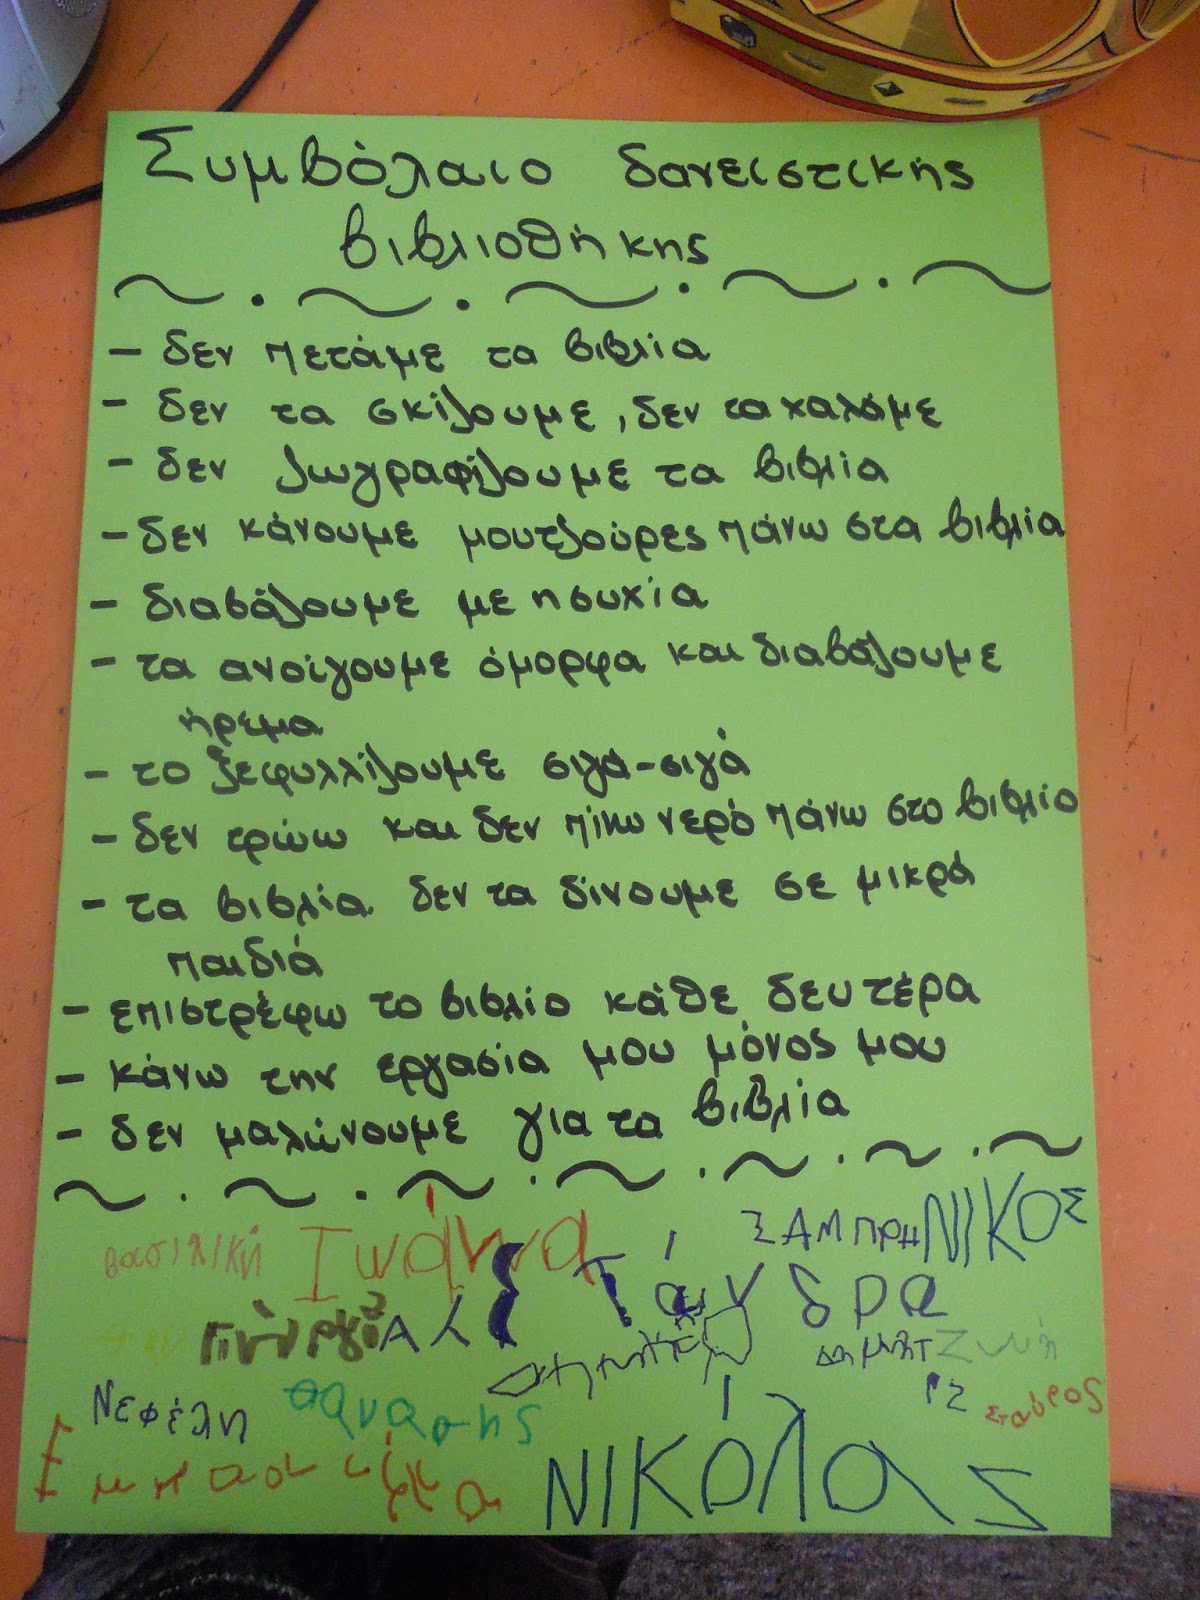 Συμβόλαιο δανειστικής
βιβλιοθήκης
- δεν πετάμε τα βιβλία
- δεν τα σκίζουμε, δεν τα χαλάμε
- δεν ζωγραφίζουμε τα βιβλία
- δεν κάνουμε μουτζούρες πάνω στα βιβλία
- διαβάζουμε με ησυχία
- τα ανοίγουμε όμορφα και διαβάζουμε
ήρεμα
- το ξεφυλλίζουμε σιγά-σιγά
- δεν τρώω και δεν πίνω νερό πάνω στο βιβλίο
- τα βιβλία δεν τα δίνουμε σε μικρά
παιδιά
- επιστρέφω το βιβλίο κάθε δευτέρα
- κάνω την εργασία μου μόνος μου
- δεν μαλώνουμε για τα βιβλία
βασιλική Ιωάννα ΣΑΜΠΡΗ ΝΙΚΟΣ
Αλεξάνδρα
Ζωή
Νεφέλη θανασης Σταύρος
ΝΙΚόλας